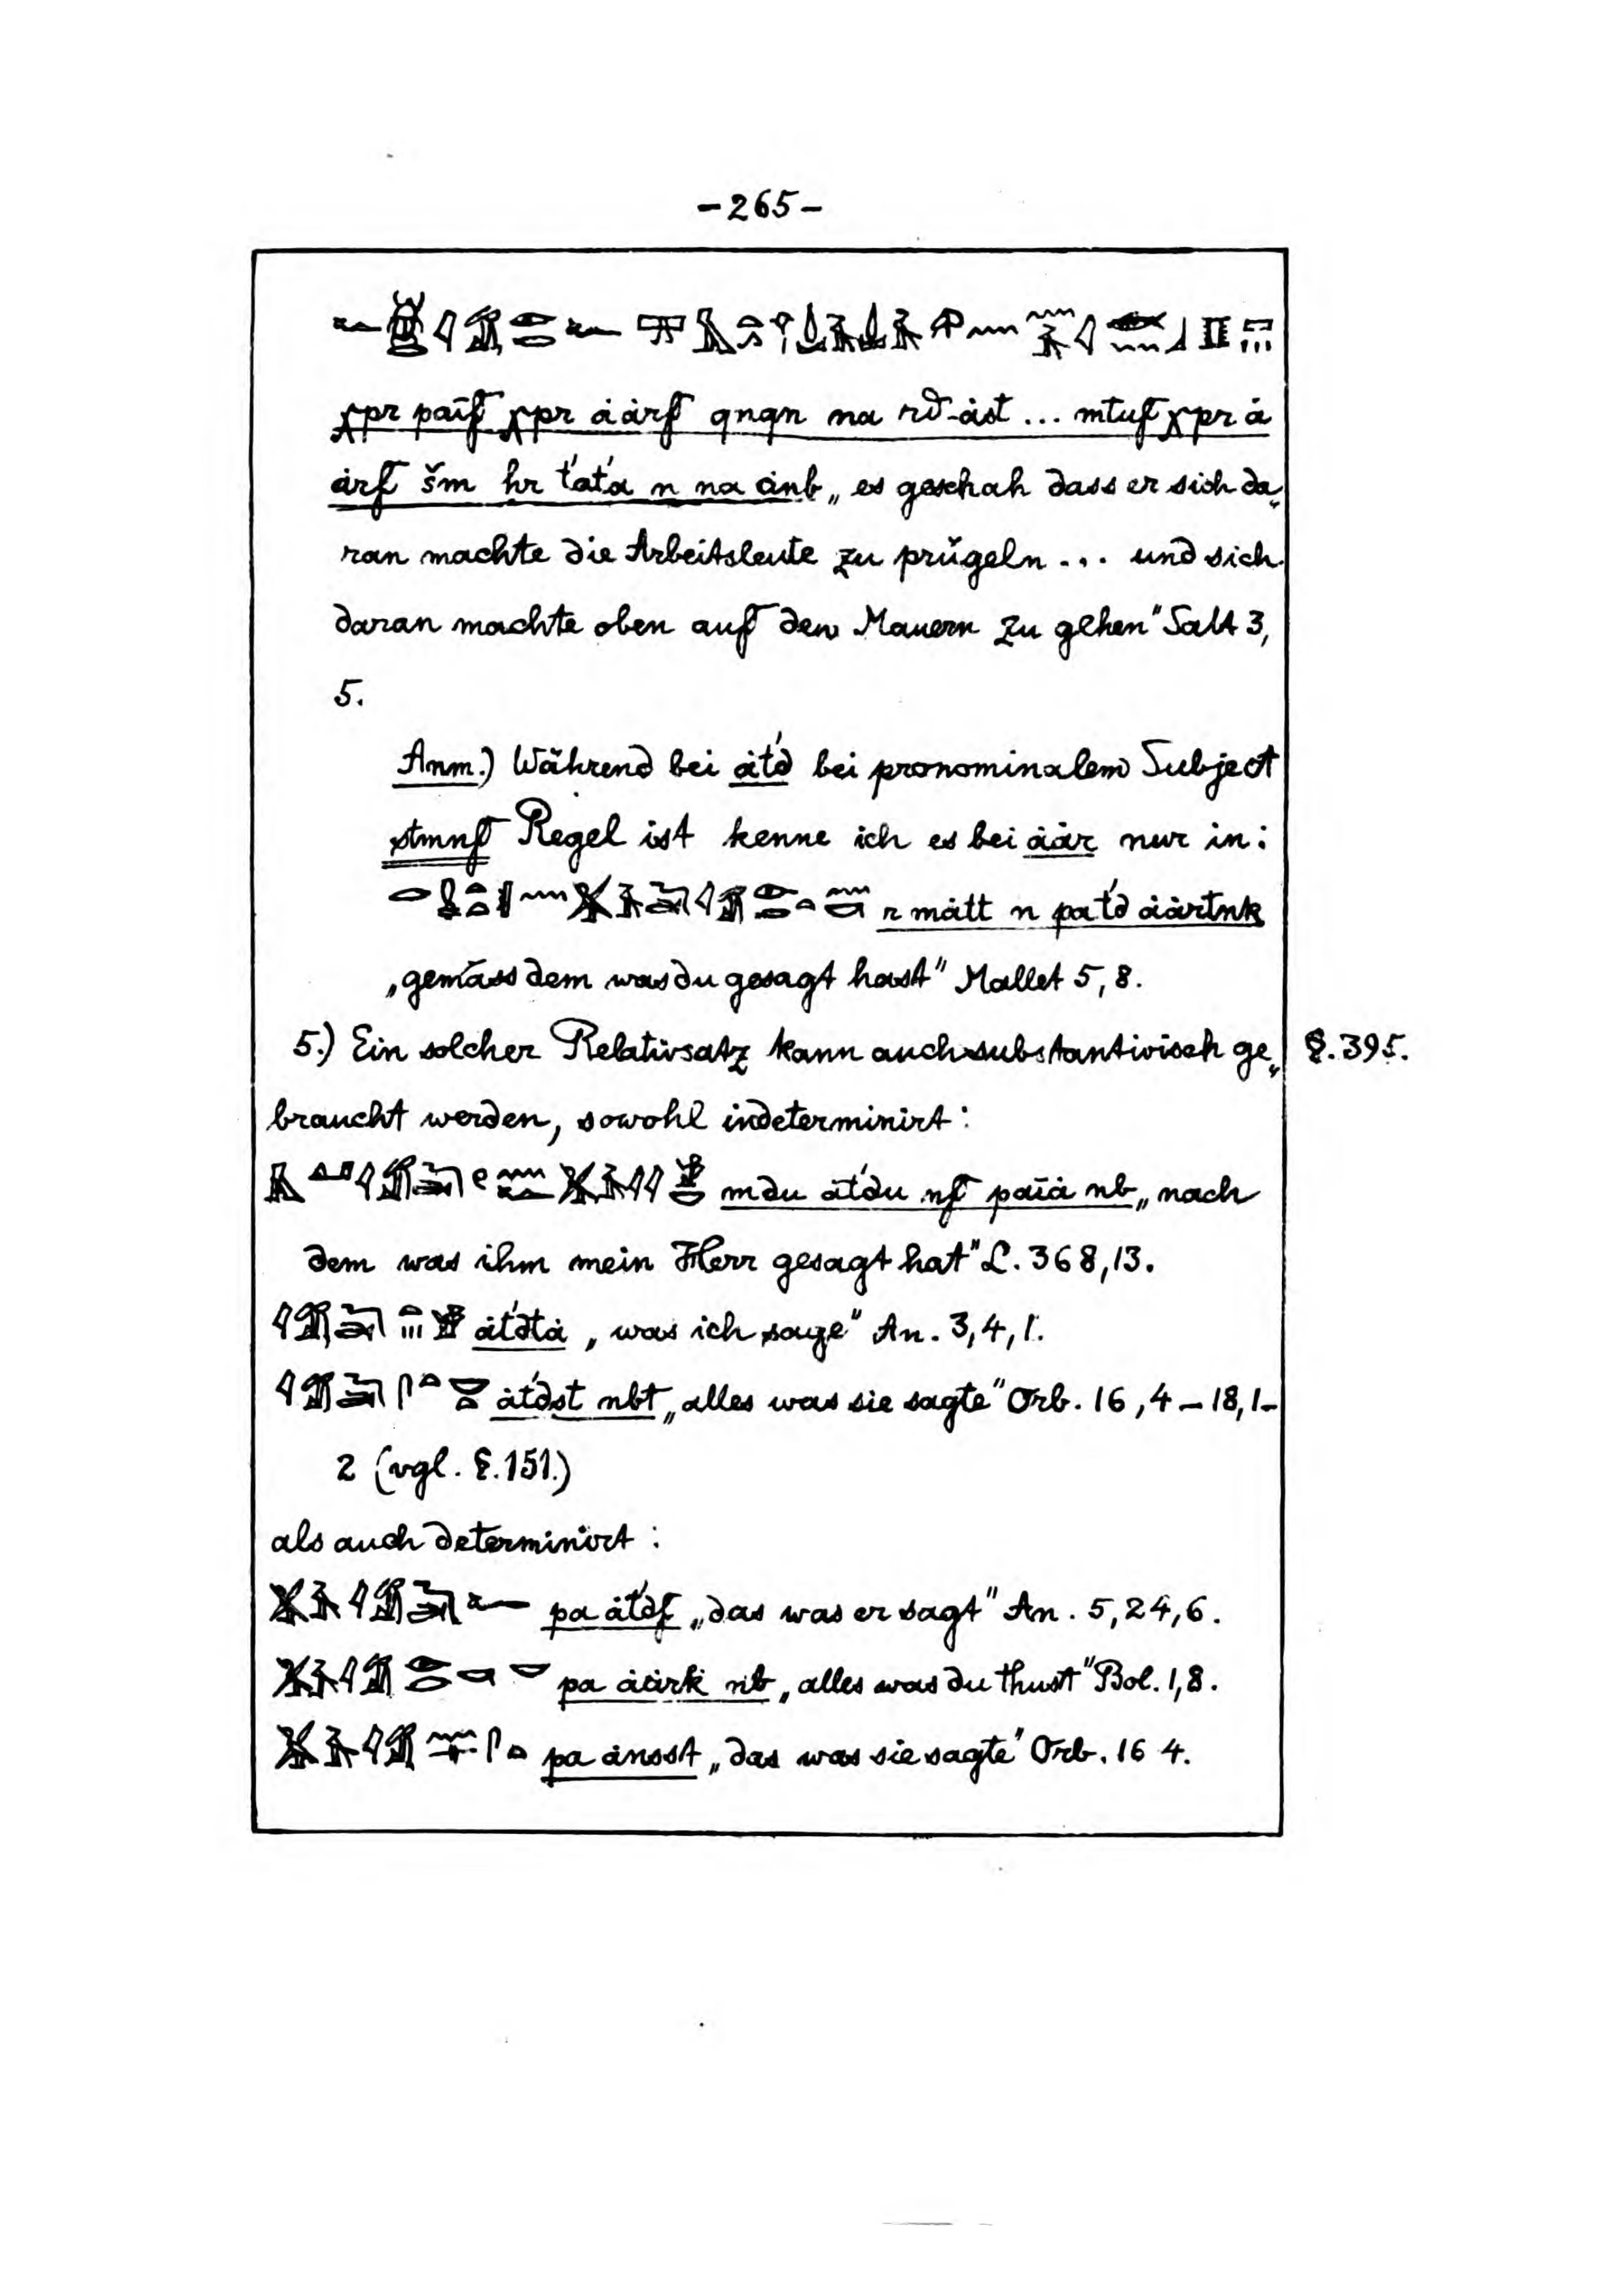 -265-
χpr paif χpr ȧȧrf qnqn na rd-ȧst ... mtuf χpr ȧ
ȧrf šm hr t́at́a n na ȧnb „es geschah dass er sich da„
ran machte die Arbeitsleute zu prügeln ... und sich
daran machte oben auf den Mauern zu gehen" Salt 3,
5.
Anm.) Während bei ȧt́d bei pronominalem Subject
stmnf Regel ist kenne ich es bei ȧȧr nur in:
r mȧtt n pa t́d ȧȧrtnk
„gemäss dem was du gesagt hast" Mallet 5, 8.
5.) Ein solcher Relativsatz kann auch substantivisch ge„ §. 395.
braucht werden, sowohl indeterminirt:
mdu ȧt́du nf paiȧ nb „nach
dem was ihm mein Herr gesagt hat" L. 368, 13.
ȧt́dtȧ „was ich sage" An. 3, 4, 1.
ȧt́dst nbt „alles was sie sagte" Orb. 16, 4 – 18, 1-
2 (vgl. §. 151.)
als auch determinirt:
pa ȧt́df „das was er sagt" An. 5, 24, 6.
pa ȧȧrk nb „alles was du thust" Bol. 1, 8.
pa ȧnsst „das was sie sagte" Orb. 16 4.